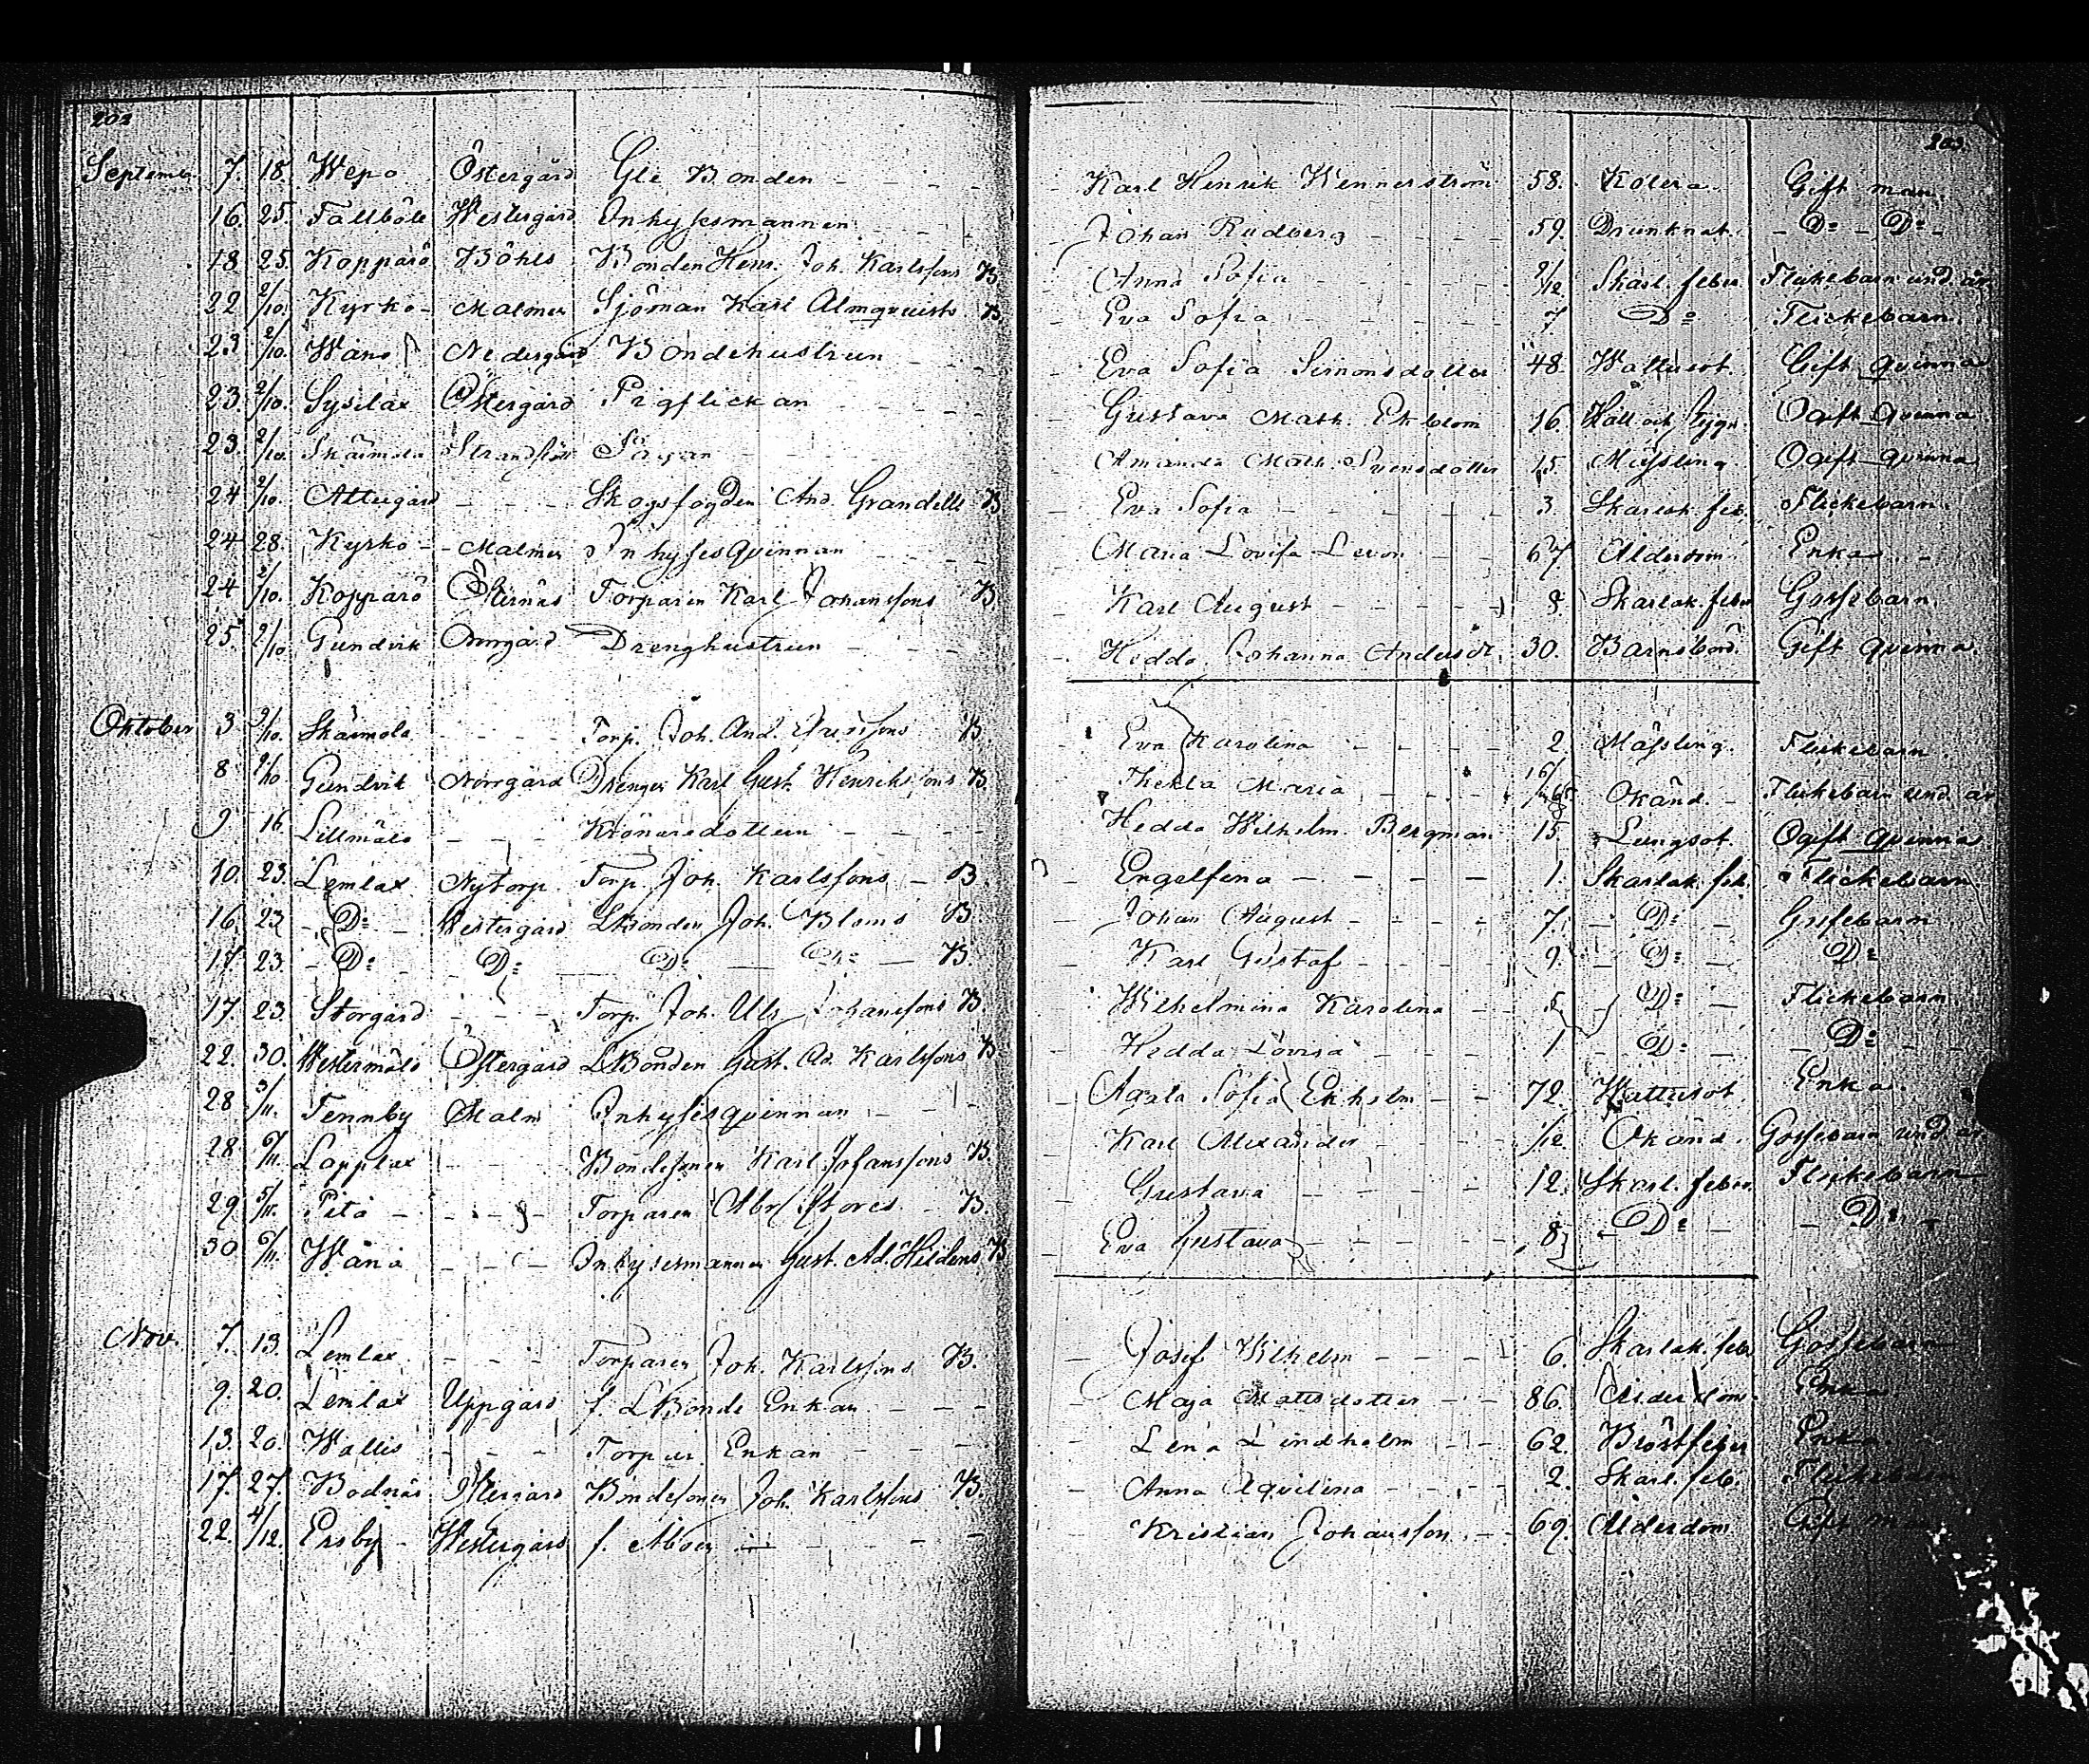 202
203
September 7. 18. Wepo Östergård Gle Bonden Karl Henrik Wennerström 58. Kolera Gift man
16. 25. Fallböle Westergård Inhysesmannen Johan Rudberg 59. Drunknat D:o D:o
18. 25. Kopparö Böhls Bonden Henr. Joh. Karlssons B. Anna Sofia 9/12 Skarl. feber Flickebarn und. år
22 2/10. Kyrko- Malmen Sjöman Karl Almqvists B. Eva Sofia 7 D:o Flickebarn
23 2/10. Wäno Nedergård Bondehustrun Eva Sofia Simonsdotter 48. Wattusot Gift qvinna
23. 2/10. Sysilax Östergård Pigflickan Gustava Math. Ekblom 16. Håll och Ogift qvinna
23. 2/10. Skärmola Amanda Math. Svensdotter 15. Mässling Ogift qvinna
24 2/10. Attergård Skogsfogden And. Grandells B. Eva Sofia 3. Skarlak. feb. Flickebarn
24 28. Kyrko- Malmen Inhysesqvinnan Maria Lovisa Levon 67 Ålderdom Enka
24 2/10. Kopparö Östernäs Torparen Karl Johanssons B. Karl August Skarlak. feber Gossebarn
25. 2/10 Gundvik Norrgård Drenghustrun Hedda Johanna Andersdr. 30. Barnsbörd. Gift qvinna
Oktober 3 9/10. Skärmola Torp. Joh. And. B. Eva Karolina 2. Mässling. Flickebarn
8 9/10 Gundvik Norrgård Drengen Karl Gust. Henrikssons B. Thekla Maria Okänd Flickebarn und. år
9 16. Lillmälö Krönaredottern Hedda Wilhelm. Bergman 15 Lungsot. Ogift qvinna
10. 23. Lemlax Nytorp. Torp. Joh. Karlssons B. Engelfena 1. Skarlak. feb. Flickebarn
16. 23 D:o Westergård LBonden Joh. Bloms B. Johan August 7. D:o Gossebarn
17 23. D:o D:o D:o D:o B. Karl Gustaf 9. D:o D:o
17. 23. Storgård Torp. Joh. Ulr. Johanssons B. Wilhelmina Karolina 5 D:o Flickebarn
22. 30. Westermälö Östergård LBonden Gust. Ad. Karlssons B. Hedda Lovisa 1 D:o D:o
28 3/11. Tennby Malm Inhysesqvinnan Agata Sofia Ekholm 72. Wattusot. Enka
28. 6/11. Lapplax Bondesonen Karl Johanssons B. Karl Alexander 1/12 Okänd. Gossebarn und. år
29 5/11. Pito Torparen Abr. Stores B. Gustava 12. Skarl. feber. Flickebarn
30 6/11. Wäno Inhysesmannen Gust. Ad. Hildens B. Eva Gustava 8 D:o D:o
Nov. 7. 13. Lemlax Torparen Joh. Karlssons B. Josef Wilhelm 6. Skarlak. feb. Gossebarn
9. 20. Lemlax Uppgård f. LBonde Enkan Maja Mattsdotter 86. Ålderdom. Enka
13. 20. Wallis Torpar Enkan Lena Lindholm 62. Bröstfeber Enka
17. 27. Bodnäs Östergård Bondesonen Joh. Karlssons B. Anna Aqvilina 2. Skarl. feb. Flickebarn
22. 4/12. Ersby Westergård f. Åboen Kristian Johansson 69. Ålderdom Gift man